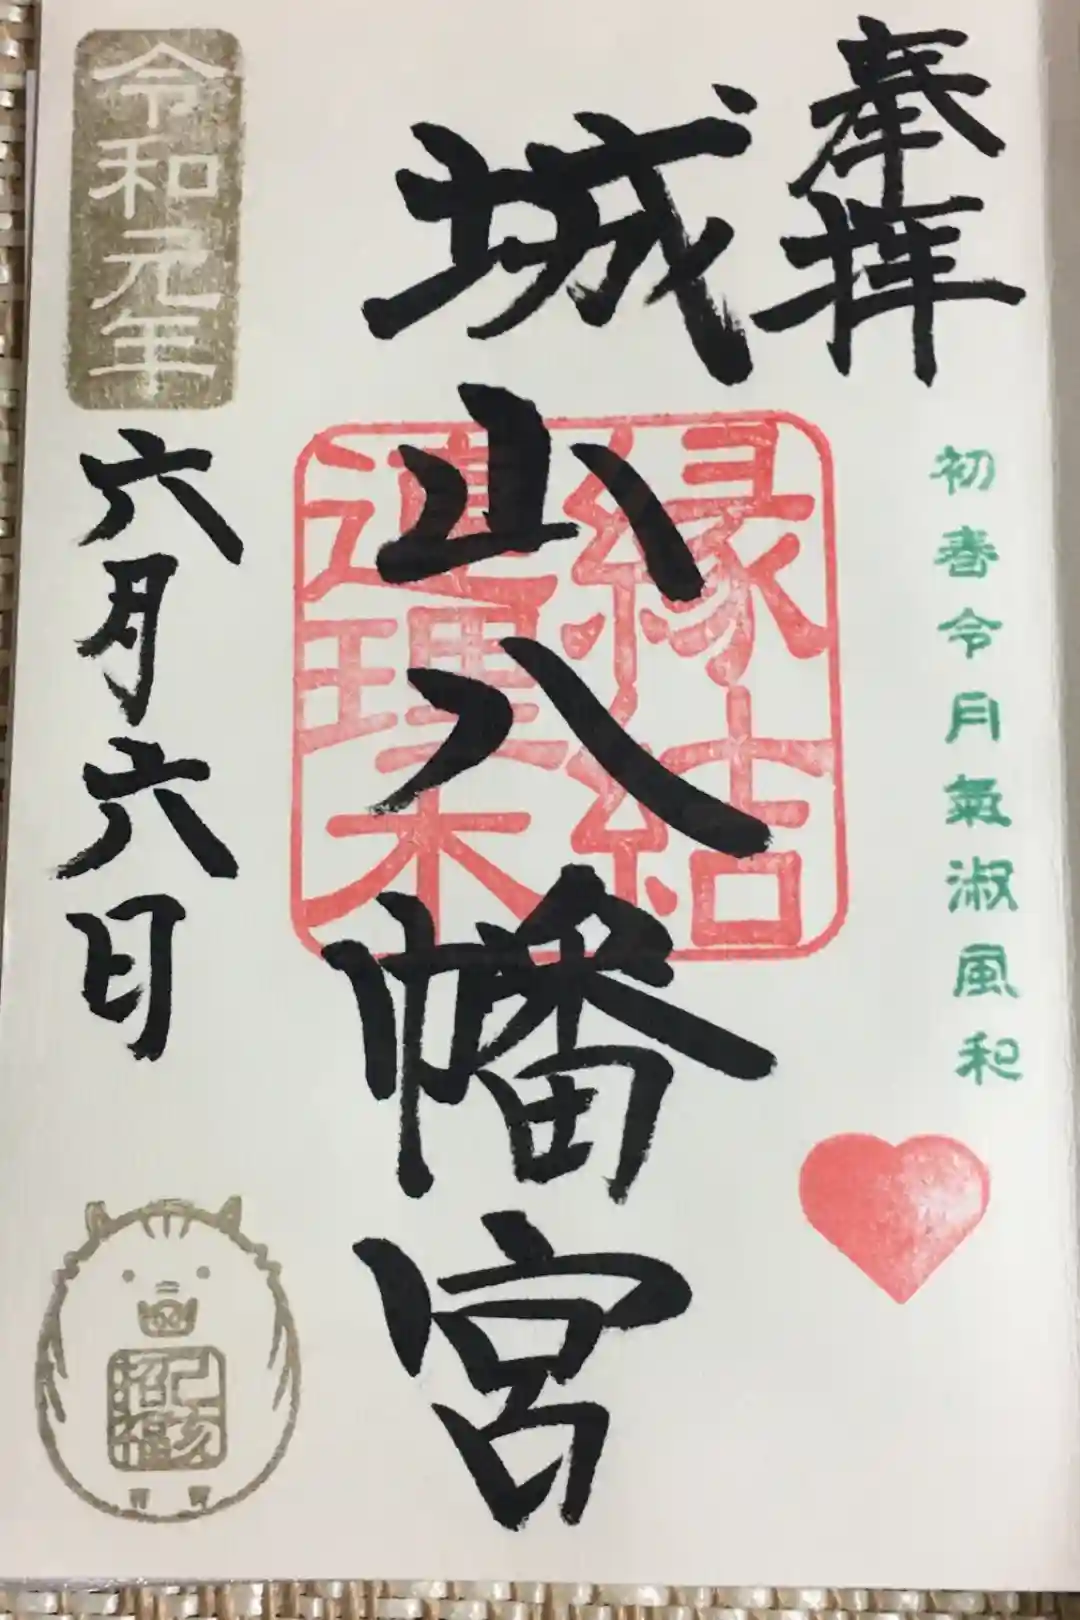 奉拝
初春令月氣淑風和
城山八幡宮
縁結
連理木
令和元年
六月六日
己亥
招福